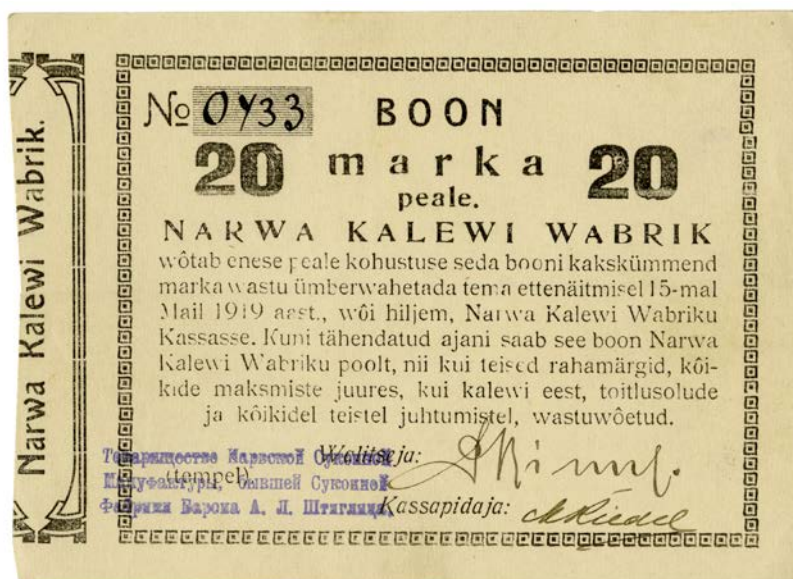 Narwa Kalewi Wabrik.
№ 0433 BOON
20 marka 20
peale.
NARWA KALEWI WABRIK
wõtab enese peale kohustuse seda booni kakskümmend
marka wastu ümberwahetada tema ettenäitmisel 15-mal
Mail 1919 aast., wõi hiljem, Narwa Kalewi Wabriku
Kassasse. Kuni tähendatud ajani saab see boon Narwa
Kalewi Wabriku poolt, nii kui teised rahamärgid, kõi-
kide maksmiste juures, kui kalewi eest, toitlusolude
ja kõikidel teistel juhtumistel, wastuwõetud.
Walitseja:
(tempel)
Товарищество Нарвской Суконной
Мануфактуры, бывшей Суконной
Фабрики Барона А. Л. Штиглица.
Kassapidaja: